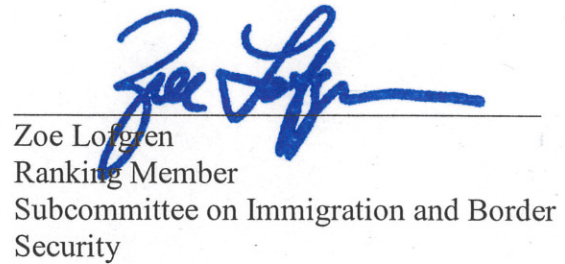 Zoe Lofgren
Zoe Lofgren
Ranking Member
Subcommittee on Immigration and Border
Security